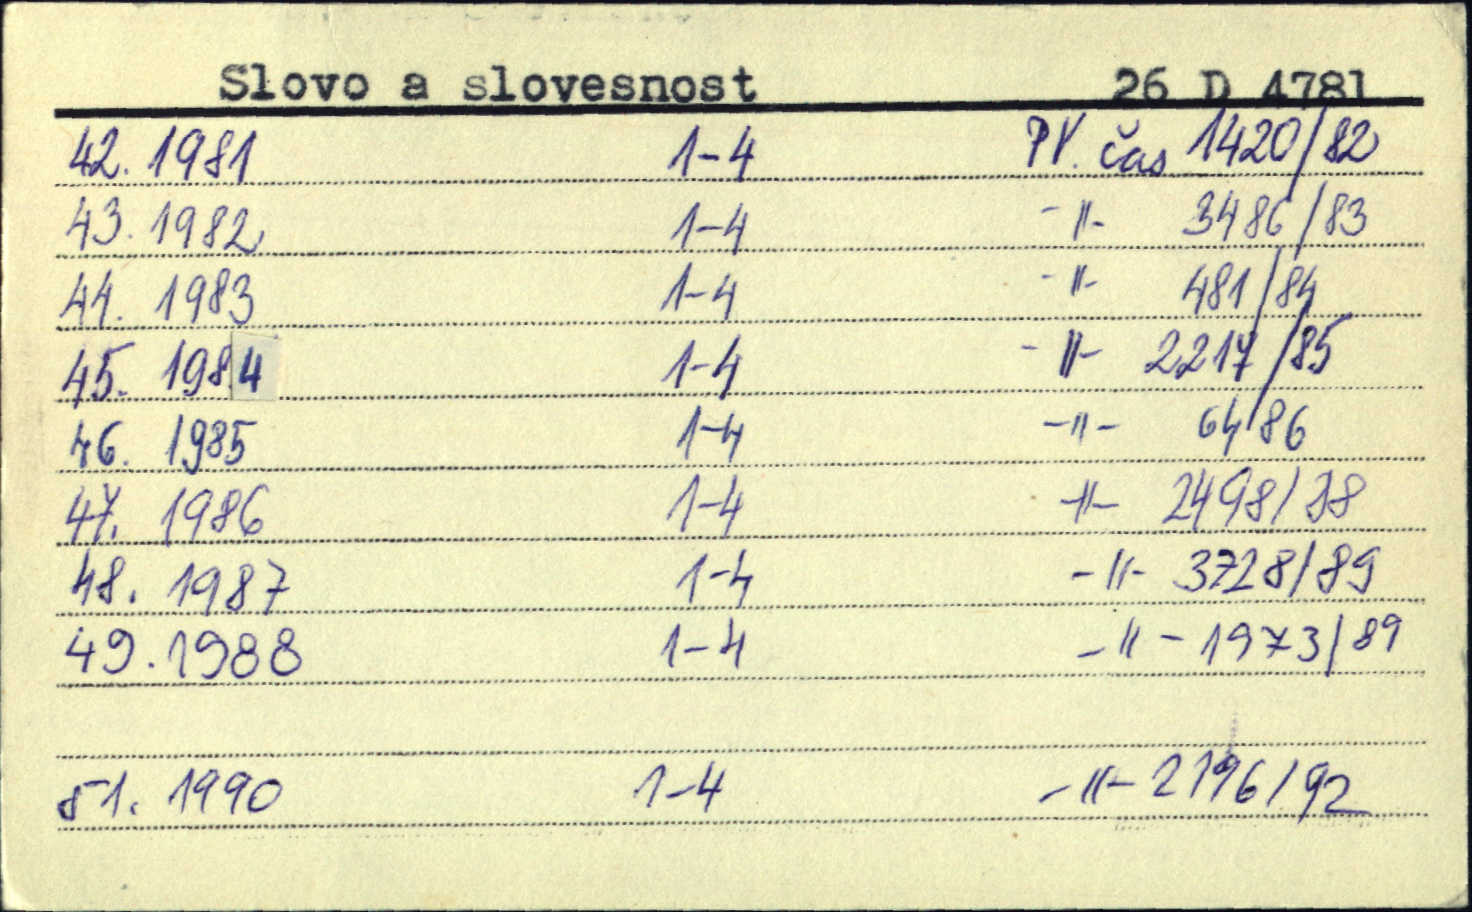 Slovo a slovesnost 26 D 4781
42. 1981 1-4 PV. čas 1420/82
43. 1982 1-4 -"- 3486/83
44. 1983 1-4 -"- 481/84
45. 1984 1-4 -"- 2217/85
46. 1985 1-4 -"- 64/86
47. 1986 1-4 -"- 2498/88
48. 1987 1-4 -"- 3728/89
49. 1988 1-4 -"- 1973/89
51. 1990 1-4 -"- 2196/92